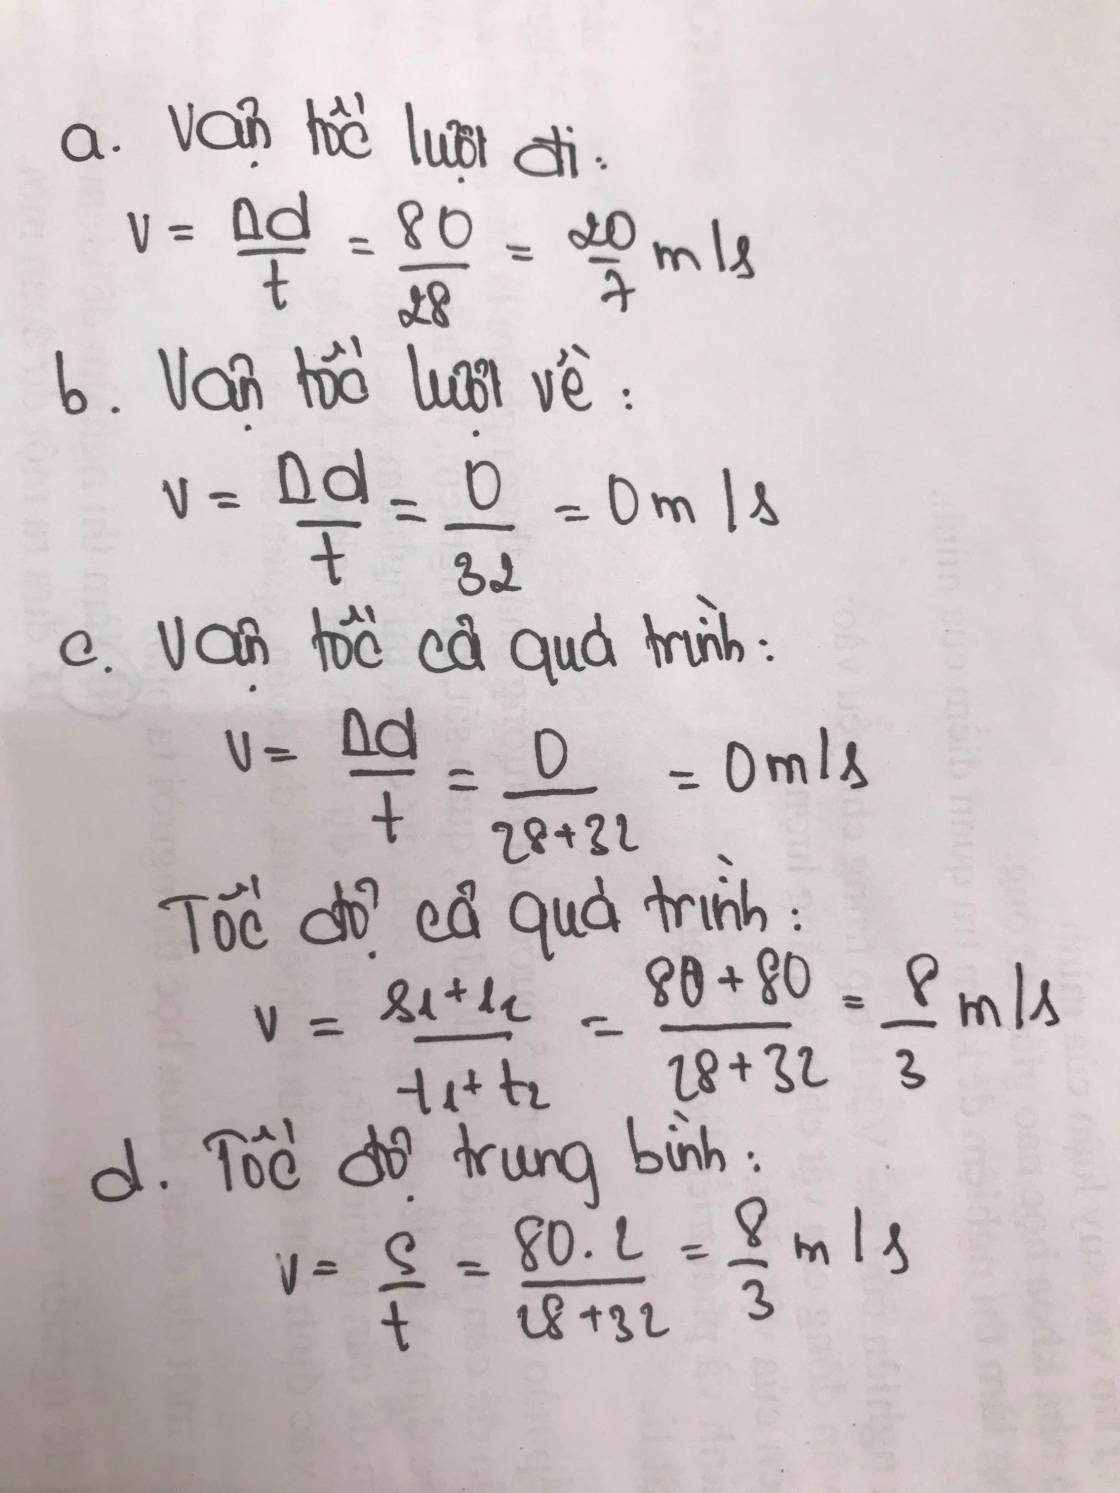 a. Vận tốc lượt đi:
v = Δd/t = 80/28 = 20/7 m/s
b. Vận tốc lượt về:
v = Δd/t = 0/32 = 0 m/s
c. Vận tốc cả quá trình:
v = Δd/t = 0/28+32 = 0 m/s
Tốc độ cả quá trình:
v = s1+s2/t1+t2 = 80+80/28+32 = 8/3 m/s
d. Tốc độ trung bình:
v = s/t = 80.2/28+32 = 8/3 m/s